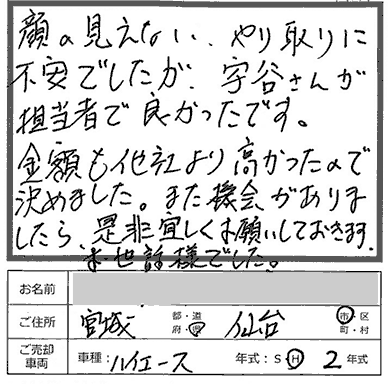 顔の見えない、やり取りに
不安でしたが、宇谷さんが
担当者で良かったです。
金額も他社より高かったので
決めました。また機会がありま
したら、是非宜しくお願いしておきます。
お世話様でした。
お名前
ご住所 宮城 都・道 府・県 仙台 市・区 町・村
ご売却 車両 車種：ハイエース 年式：S・H 2年式